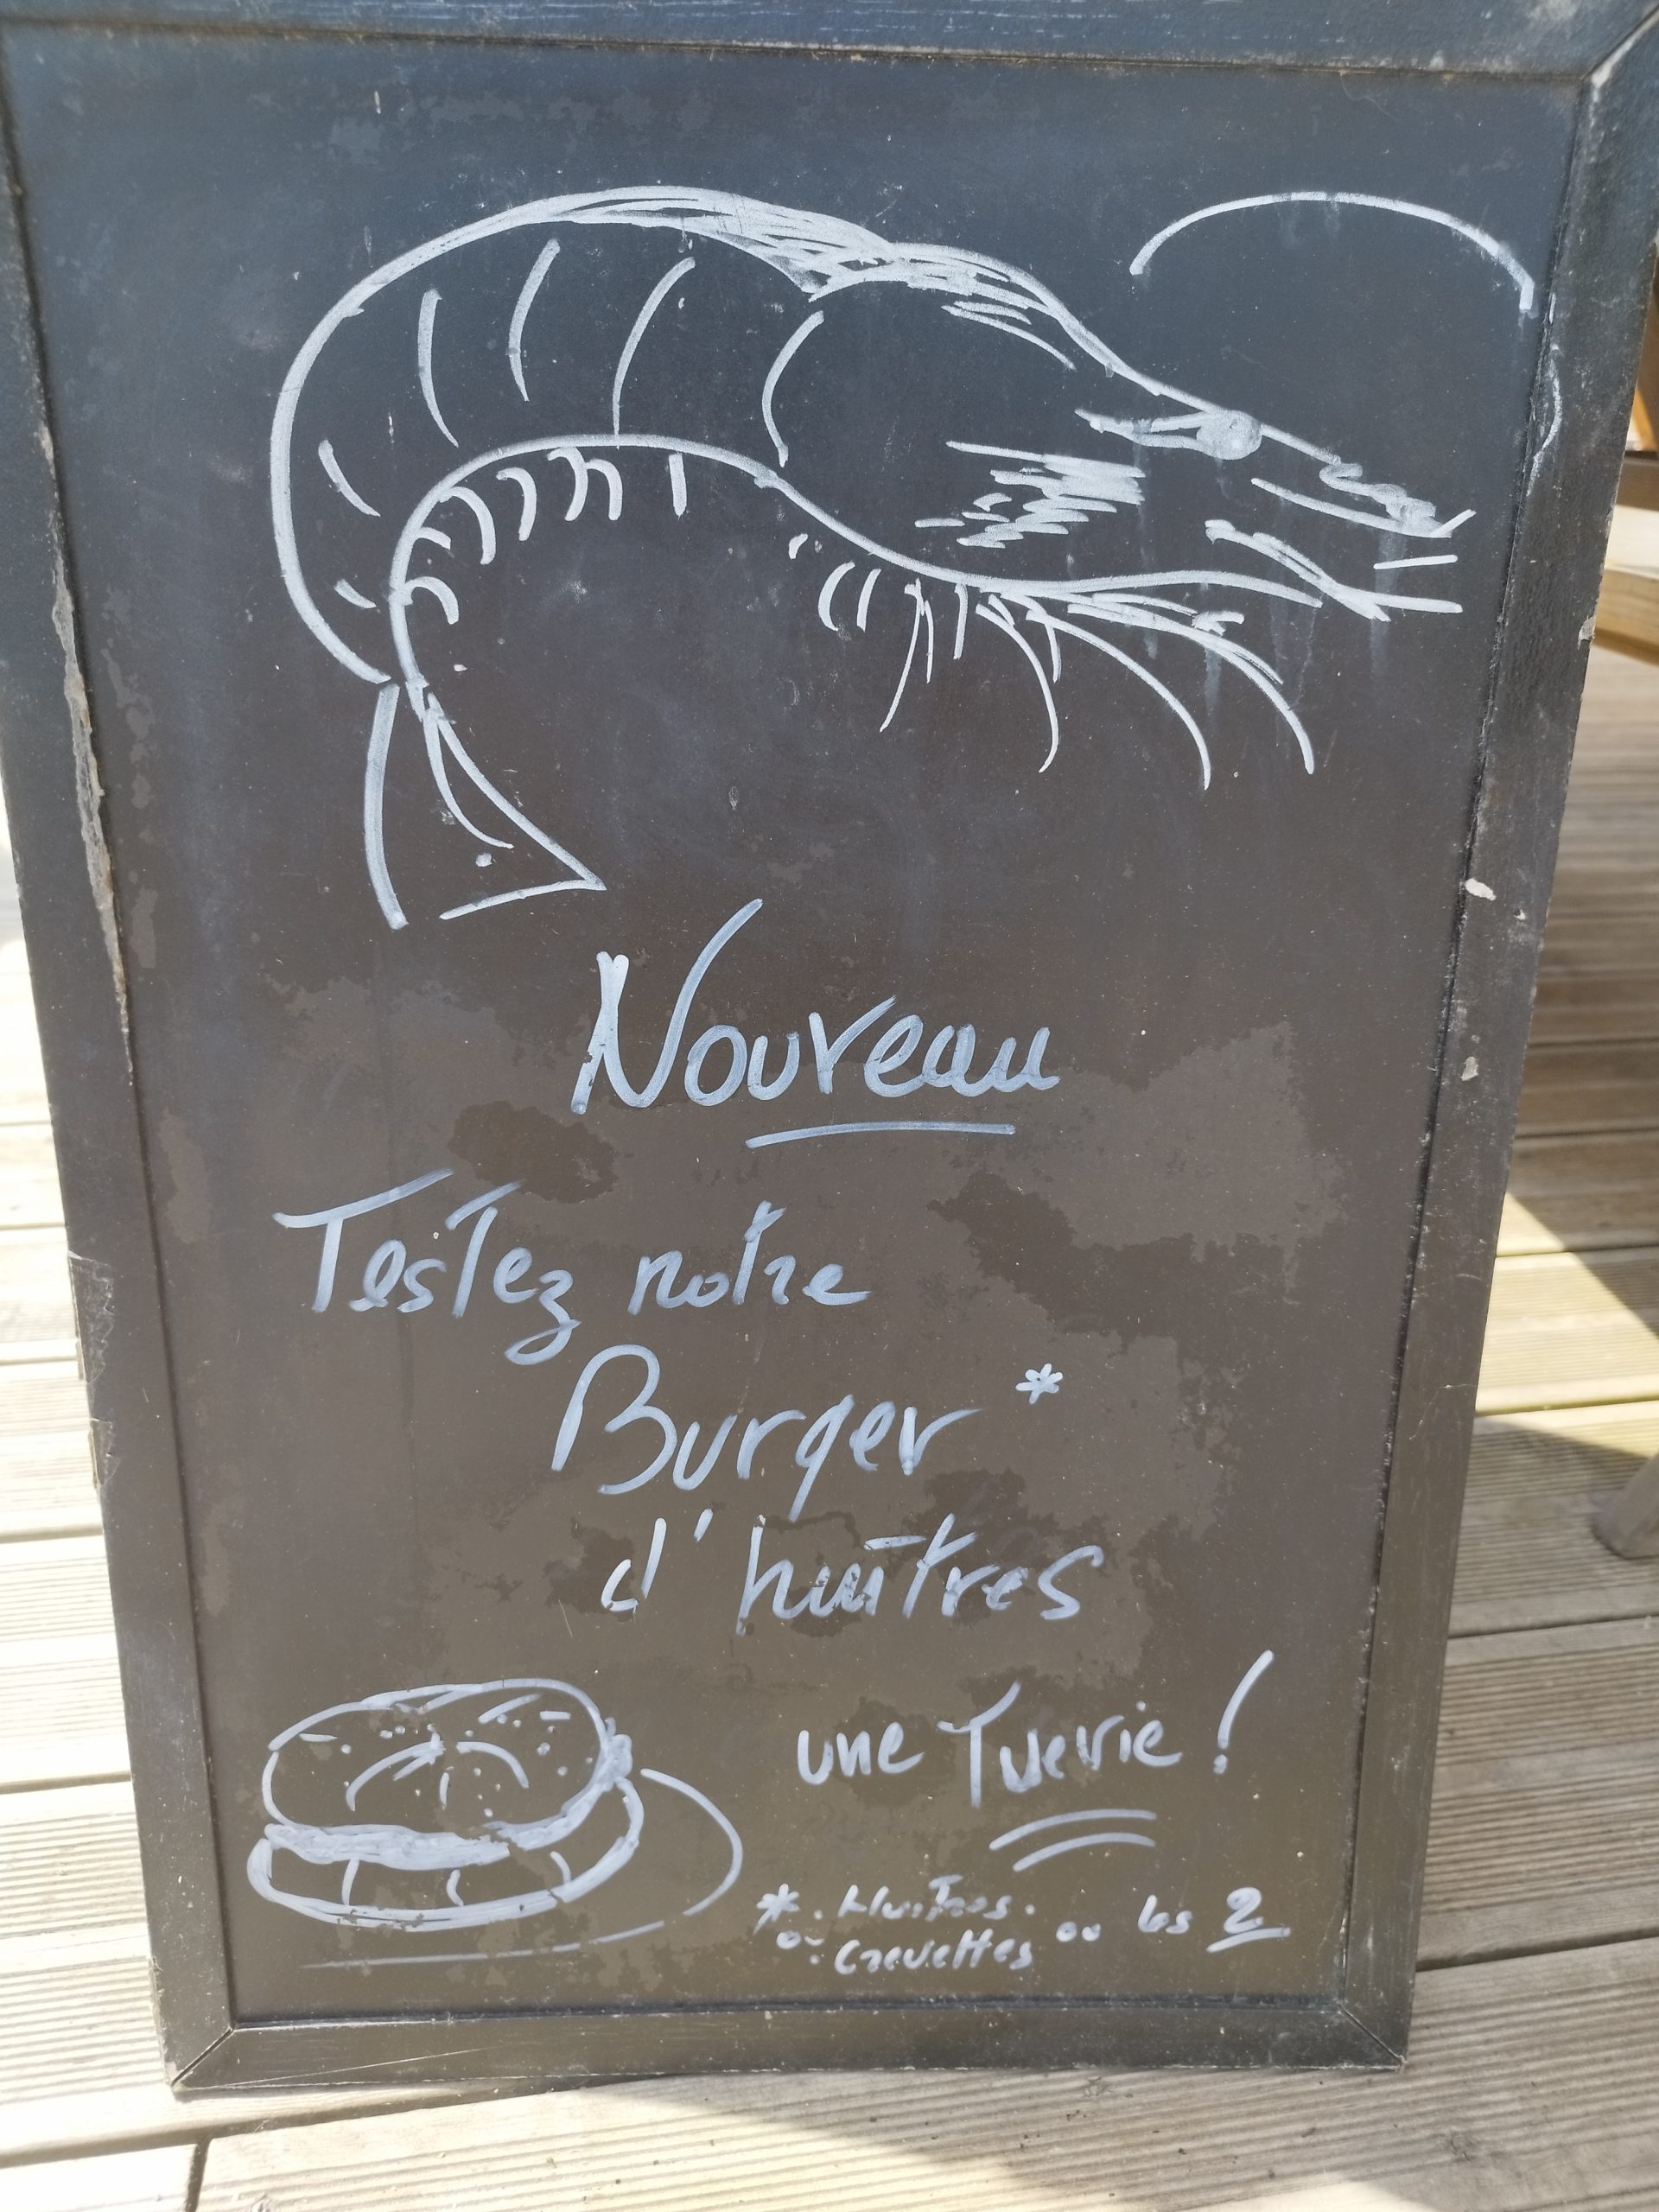 Nouveau
Testez notre
Burger *
d'huîtres
une Tuerie !
* . Huîtres .
ou . Crevettes ou les 2